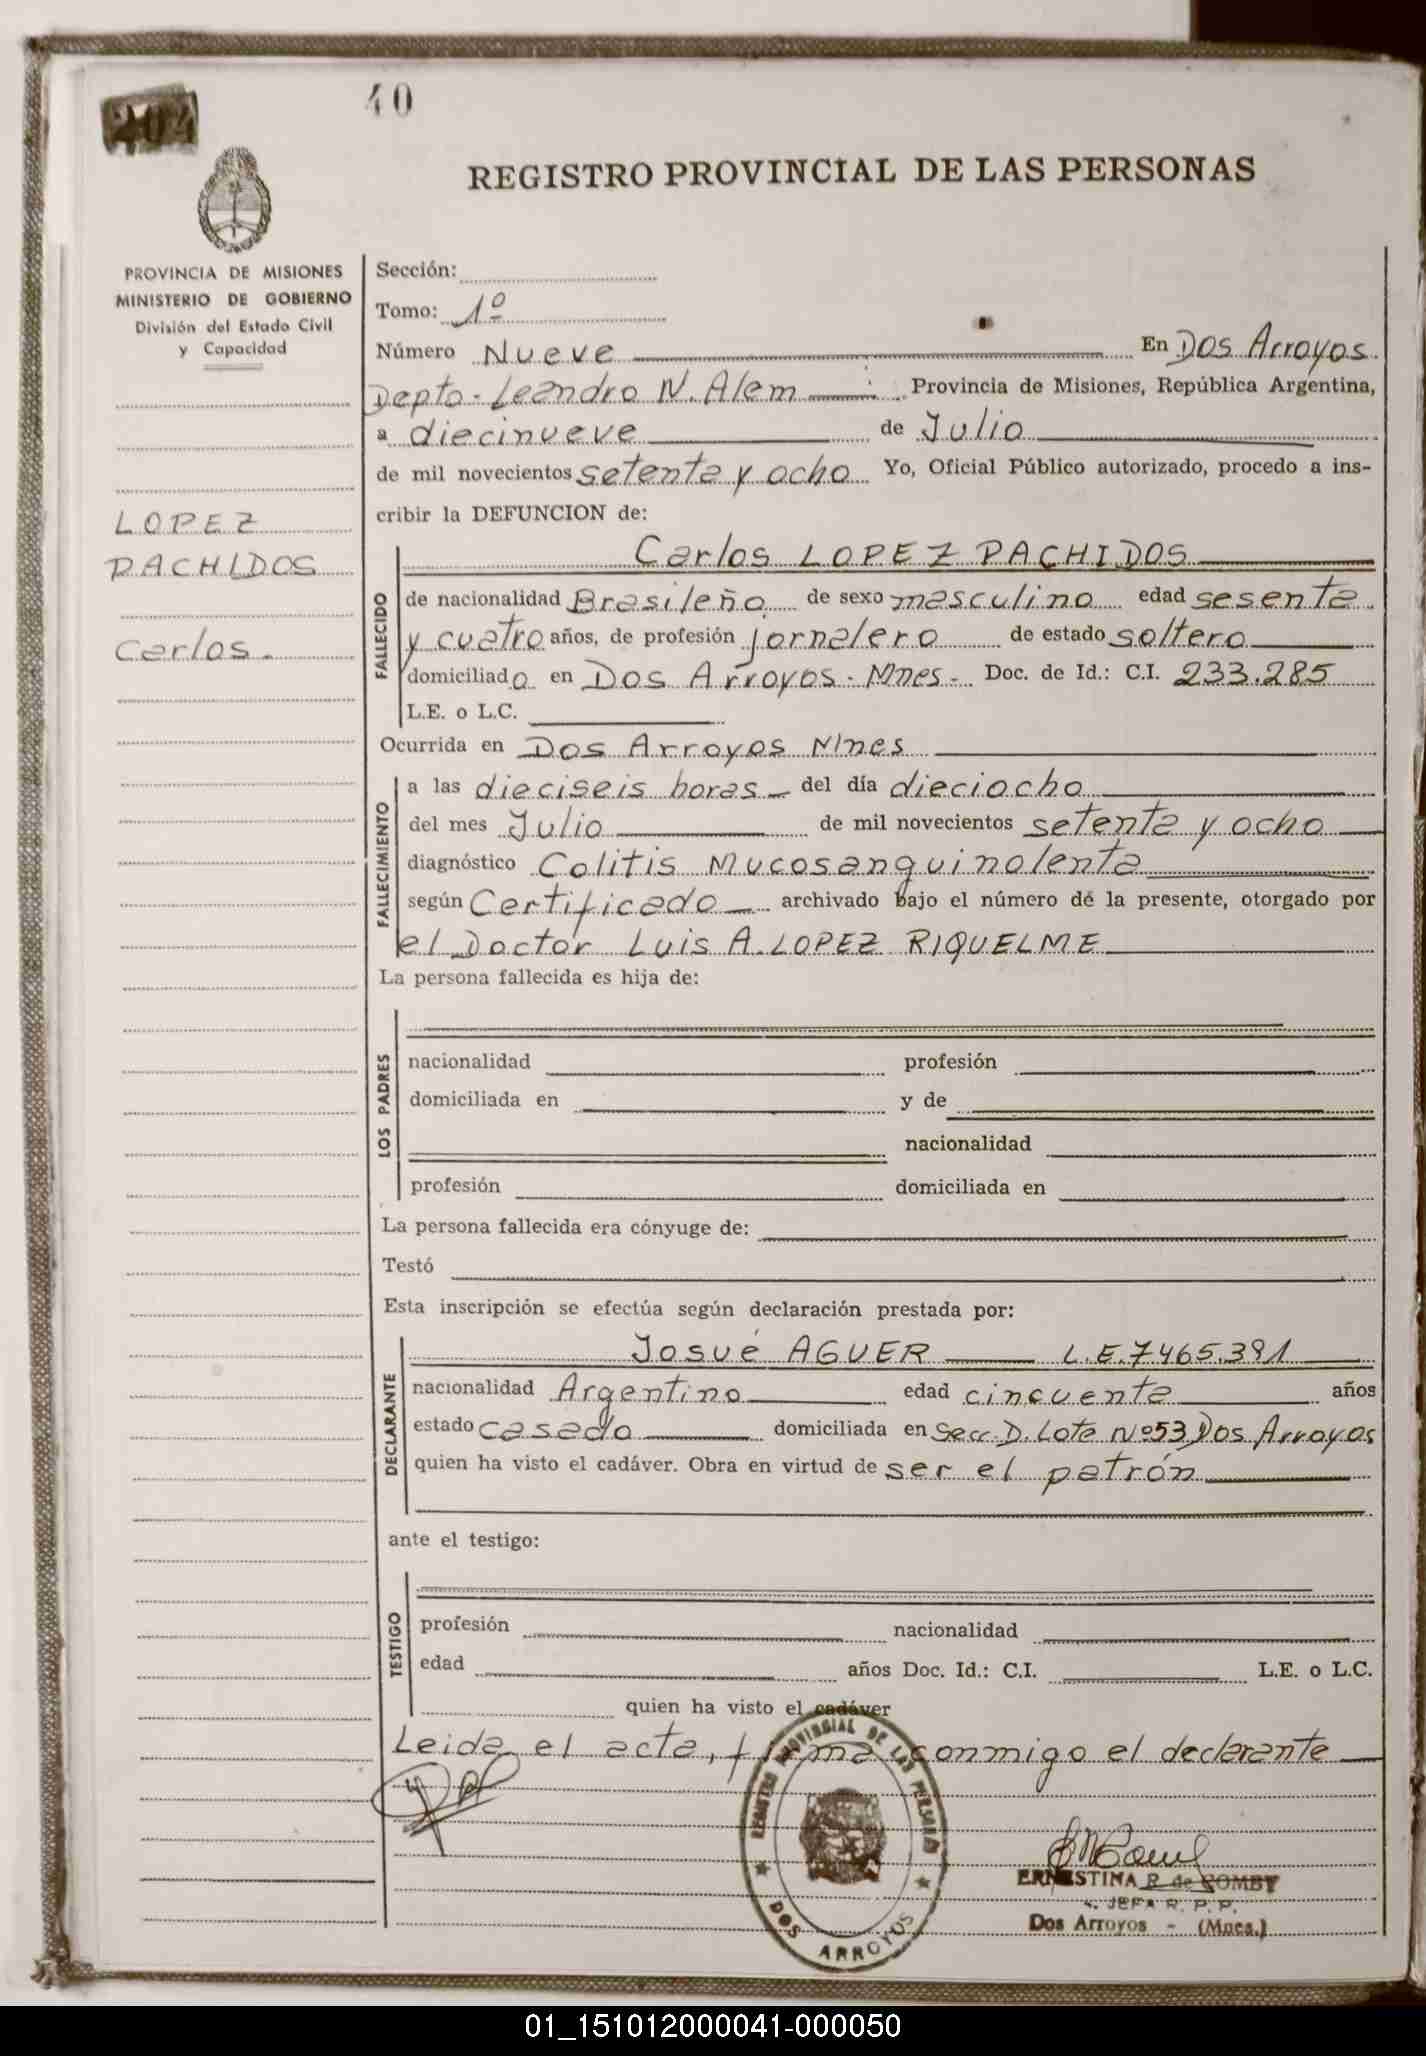 204
40
REGISTRO PROVINCIAL DE LAS PERSONAS
PROVINCIA DE MISIONES
MINISTERIO DE GOBIERNO
División del Estado Civil
y Capacidad
LOPEZ
PACHIDOS
Carlos.
Sección:
Tomo: 1º
Número Nueve En Dos Arroyos
Depto. Leandro N. Alem Provincia de Misiones, República Argentina,
a diecinueve de Julio
de mil novecientos setenta y ocho Yo, Oficial Público autorizado, procedo a ins-
cribir la DEFUNCION de:
FALLECIDO
Carlos LOPEZ PACHIDOS
de nacionalidad Brasileño de sexo masculino edad sesenta
y cuatro años, de profesión jornalero de estado soltero
domiciliado en Dos Arroyos - Mnes - Doc. de Id.: C.I. 233.285
L.E. o L.C.
Ocurrida en Dos Arroyos Mnes
FALLECIMIENTO
a las dieciseis horas del día dieciocho
del mes Julio de mil novecientos setenta y ocho
diagnóstico Colitis Mucosanguinolenta
según Certificado archivado bajo el número de la presente, otorgado por
el Doctor Luis A. LOPEZ RIQUELME
La persona fallecida es hija de:
LOS PADRES
nacionalidad profesión
domiciliada en y de
nacionalidad
profesión domiciliada en
La persona fallecida era cónyuge de:
Testó
Esta inscripción se efectúa según declaración prestada por:
DECLARANTE
Josué AGUER L.E. 7465.391
nacionalidad Argentino edad cincuenta años
estado casado domiciliada en Secc. D. Lote Nº 53 Dos Arroyos
quien ha visto el cadáver. Obra en virtud de ser el patrón
ante el testigo:
TESTIGO
profesión nacionalidad
edad años Doc. Id.: C.I. L.E. o L.C.
quien ha visto el cadáver
Leida el acta, firma conmigo el declarante
REGISTRO PROVINCIAL DE LAS PERSONAS
DOS ARROYOS
ERNESTINA R. de GOMBY
JEFA R. P. P.
Dos Arroyos - (Mnes.)
01_151012000041-000050